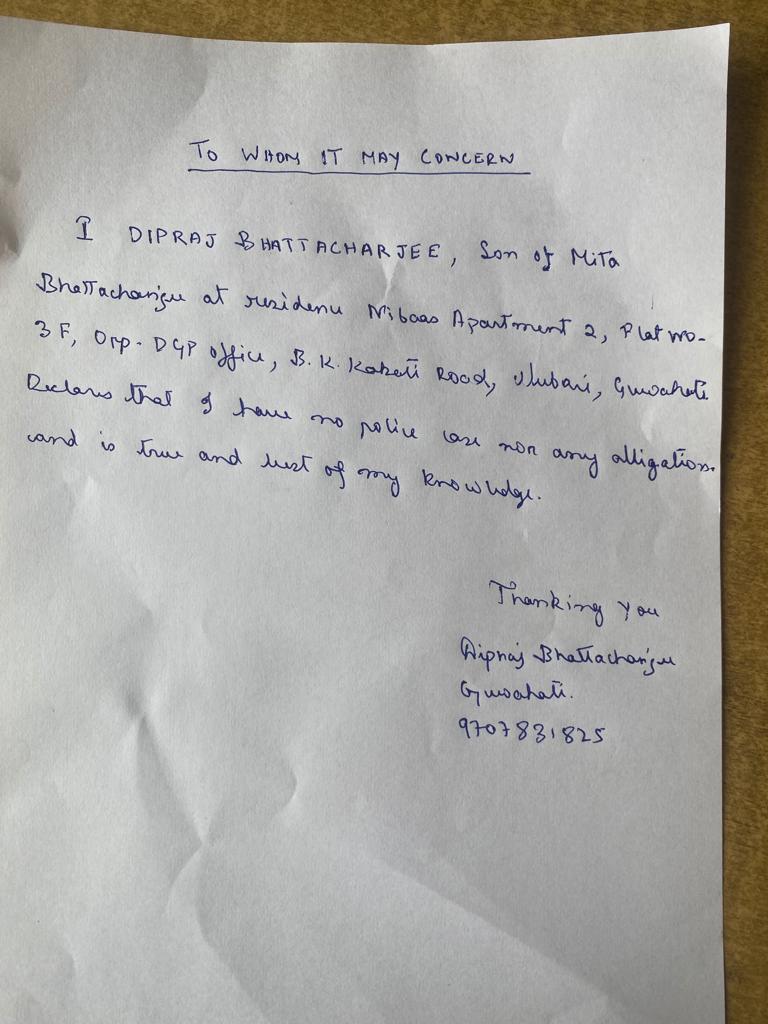 TO WHOM IT MAY CONCERN
I DIPRAJ BHATTACHARJEE, Son of Mita
Bhattacharjee at residence Nibaas Apartment 2, Flat no-
3F, Opp- DGP office, B.K. Kakati Road, Ulubari, Guwahati
Declares that I have no police case nor any alligation.
and is true and best of my knowledge.
Thanking you
Dipraj Bhattacharjee
Guwahati.
9707831825